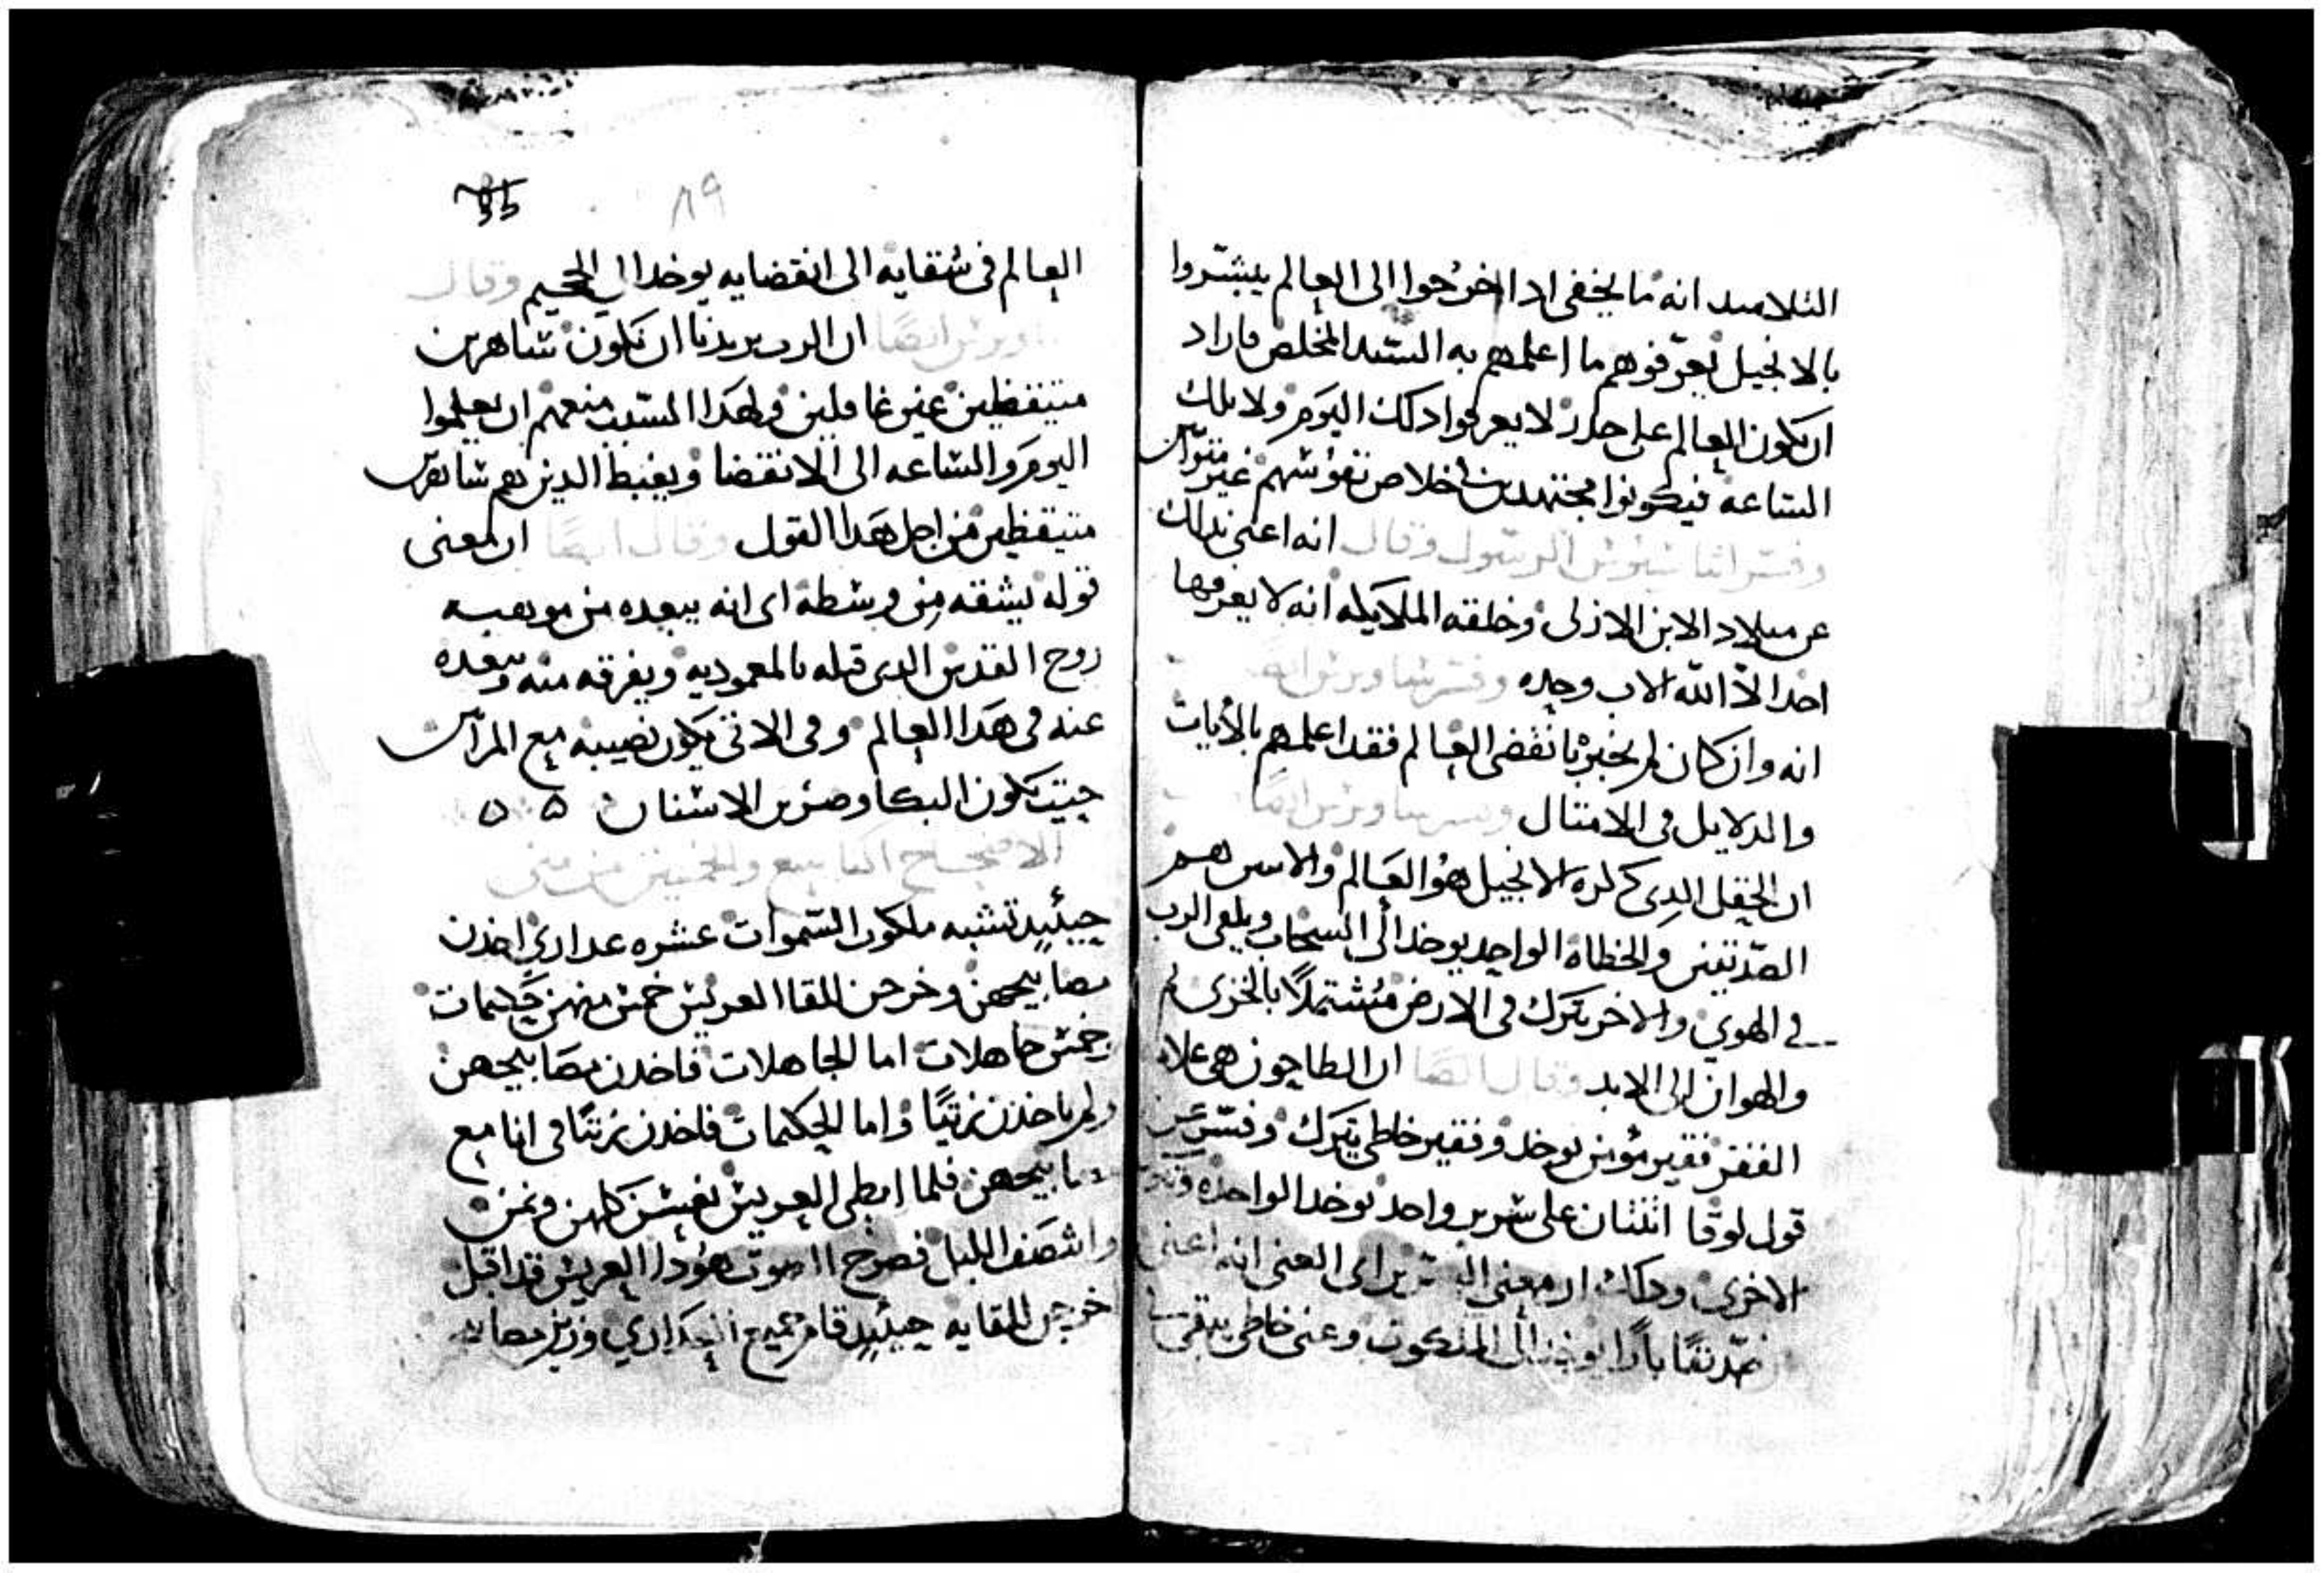 التلاميد انه ما يخفى ادا اخرجوا الى العالم يبشروا
بالانجيل يعرفوهم ما اعلمهم به السيد المخلص فاراد
ان يكون العالم على حدر لا يعرفوا دلك اليوم ولا تلك
الساعه فيكونوا مجتهدين في خلاص نفوسهم غير
وفسر الرسول وقال انه اعنى بدلك
عن ميلاد الابن الازلى وخلقه الملايكه انه لا يعرفها
احدا الا الله الاب وحده وفسر ساويرس ايضا
انه وان كان لم يخبر بانقضى العالم فقد اعلمهم بالايات
والدلايل فى الامتال وفسر ساويرس ايضا
ان الحقل الدى دكره الانجيل هو العالم والاتنين هم
الصديقين والخطاه الواحد يوخد الى السحاب ويلقى الرب
في الهوى والاخر يترك فى الارض مشتملا بالخزى
والهوان الى الابد وقال ايضا ان الطاحون هى علاه
الفقر فقير مؤمن يوخد وفقير خاطى يترك وفسر عن
قول لوقا اتنتان على سرير واحد توخد الواحده وتترك
الاخرى ودلك ان معنى السرير اى الغنى انه اعنى
صديقا بارا يوخد الى الملكوت وغنى خاطى يبقى
٨٩
العالم فى شقايه الى انقضايه يوخد الى الجحيم وقال
ساويرس ايضا ان الرب يريدنا ان نكون ساهرين
متيقظين غير غافلين ولهدا السبب منعهم ان يعلموا
اليوم والساعه الى الانقضا ويغبط الدين هم ساهرين
متيقظين من اجل هدا القول وقال ايضا ان معنى
قوله يشقه من وسطه اى انه يبعده من موهبه
روح القدس الدى قبله بالمعموديه ويفرقه منه ويبعده
عنه فى هدا العالم وفى الاتى يكون نصيبه مع المرآين
حيت يكون البكا وصرير الاسنان ه ه
الاصحاح السابع والخمسين من متى
حينئيد تشبه ملكوت السموات عشره عدارى اخدن
مصابيحهن وخرجن للقا العريس خمس منهن حكيمات
وخمس جاهلات اما الجاهلات فاخدن مصابيحهن
ولم ياخدن زيتا واما الحكيمات فاخدن زيتا فى انا مع
مصابيحهن فلما ابطى العريس نعسن كلهن ونمن
وانتصف الليل فصرخ الصوت هودا العريس قد اقبل
اخرجن للقايه حينئيد قام جميع العدارى وزين مصابيحهن